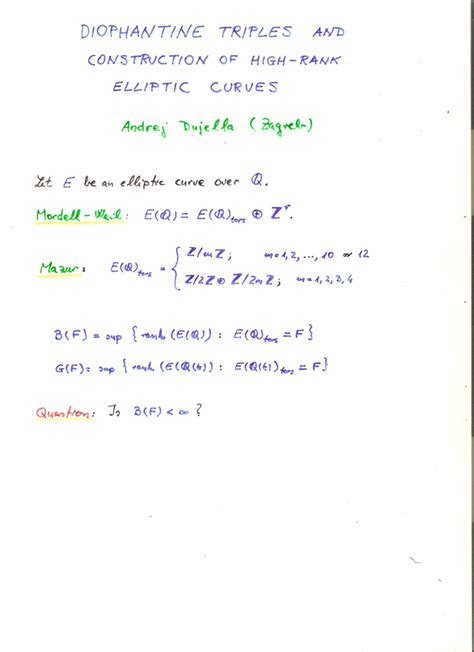 DIOPHANTINE TRIPLES AND
CONSTRUCTION OF HIGH-RANK
ELLIPTIC CURVES
Andrej Dujella (Zagreb)
Let E be an elliptic curve over Q.
Mordell-Weil: E(Q) = E(Q)tors ⊕ Z^r.
Mazur: E(Q)tors = { Z/mZ; m=1,2,...,10 or 12
Z/2Z ⊕ Z/2mZ; m=1,2,3,4
B(F) = sup { rank (E(Q)) : E(Q)tors = F }
G(F) = sup { rank (E(Q(t)) : E(Q(t))tors = F }
Question: Is B(F) < ∞ ?